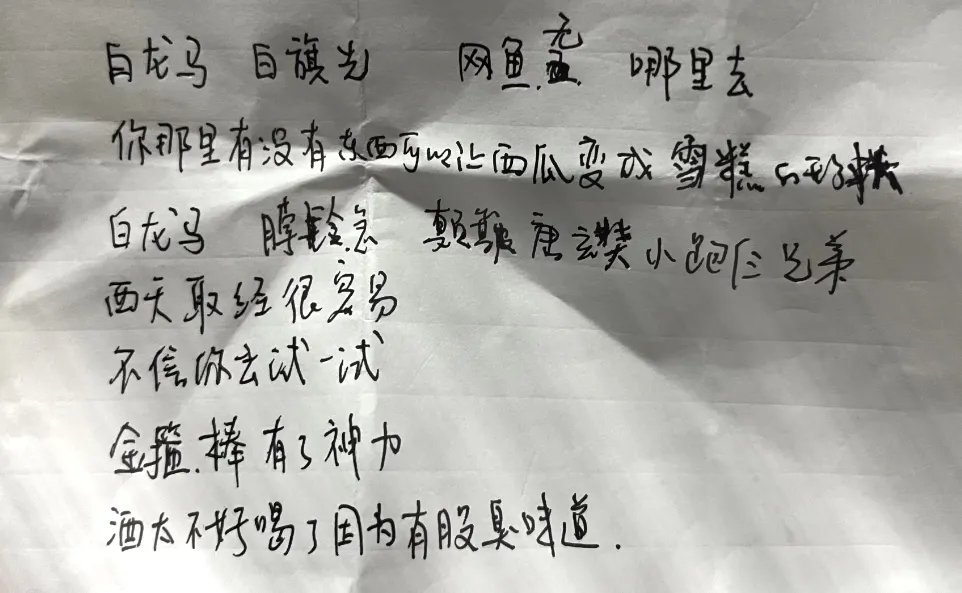 白龙马 白旗先 网鱼无 哪里去
你那里有没有东西可以让西瓜变成雪糕的形状
白龙马 脖铃急 颠唐玄奘小跑仨兄弟
西天取经很容易
不信你去试一试
金箍棒有了神力
酒太不好喝了因为有股臭味道.